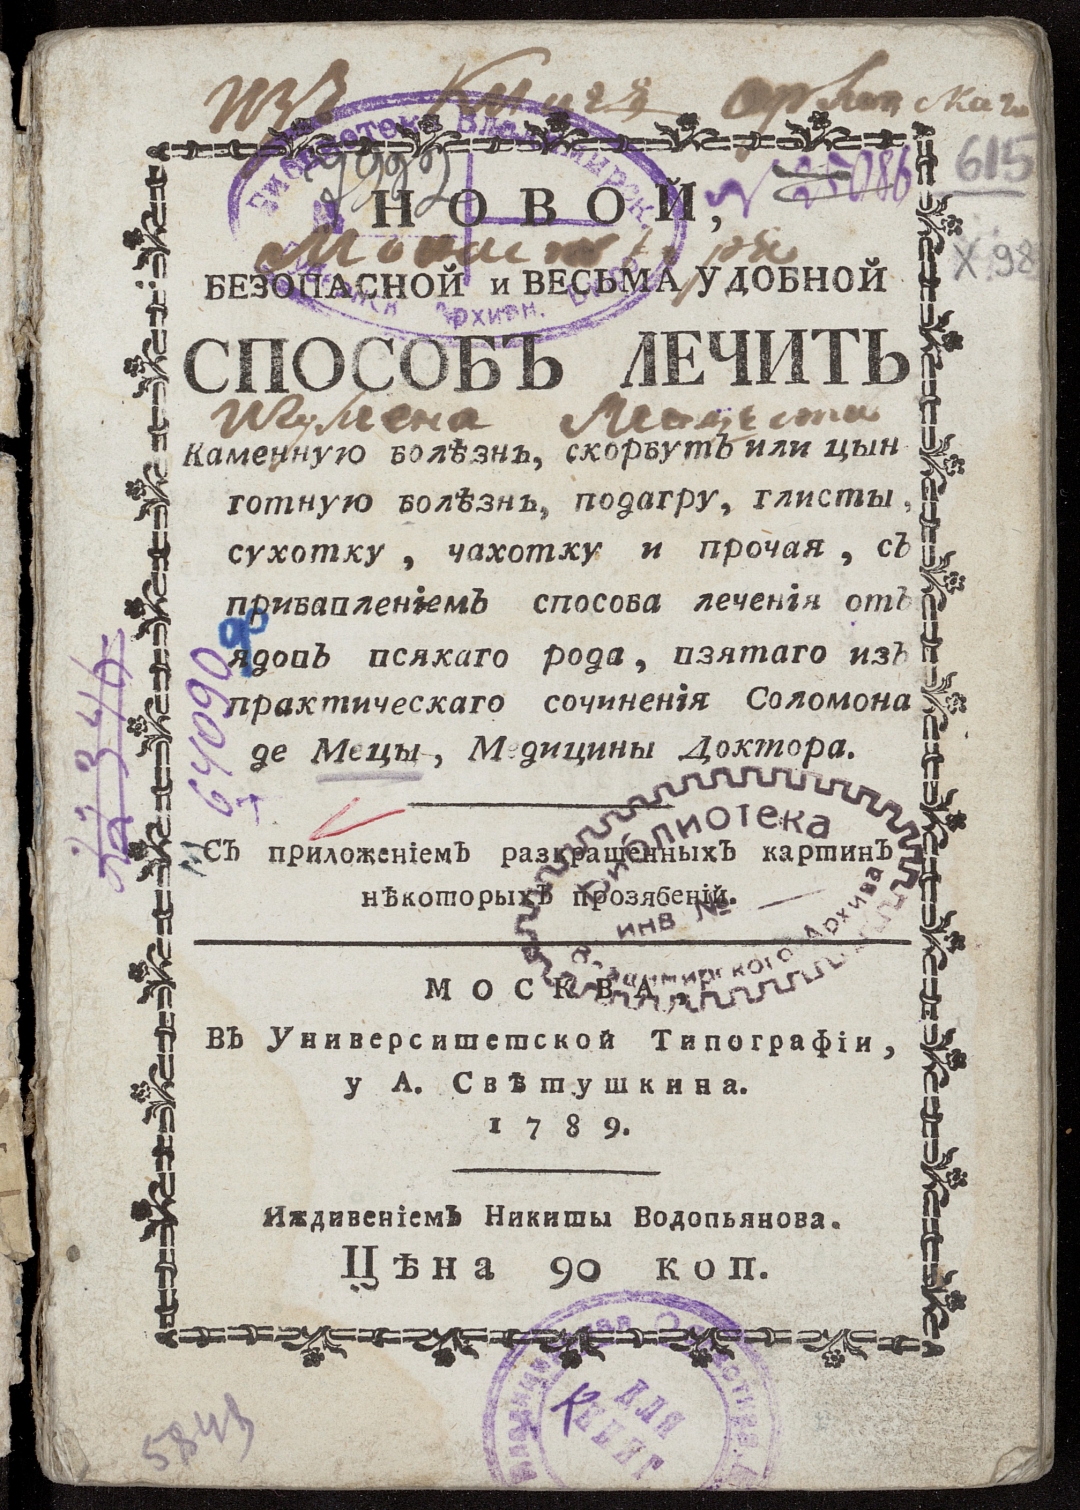 Изъ Книгъ
615
№ 25086
Х 98
НОВОЙ,
БЕЗОПАСНОЙ и ВЕСЬМА УДОБНОЙ
СПОСОБЪ ЛЕЧИТЬ
Каменную болѣзнь, скорбутъ или цын
готную болѣзнь, подагру, глисты,
сухотку, чахотку и прочая, съ
прибавленіемъ способа леченія отъ
ядовъ всякаго рода, взятаго изъ
практическаго сочиненія Соломона
де Мецы, Медицины Доктора.
64090
Съ приложеніемъ разкрашенныхъ картинъ
нѣкоторыхъ прозябеній.
Библиотека
инв №
Владимирского Архива
МОСКВА,
Въ Университетской Типографіи,
у А. Свѣтушкина.
1789.
Иждивеніемъ Никиты Водопьянова.
Цѣна 90 коп.